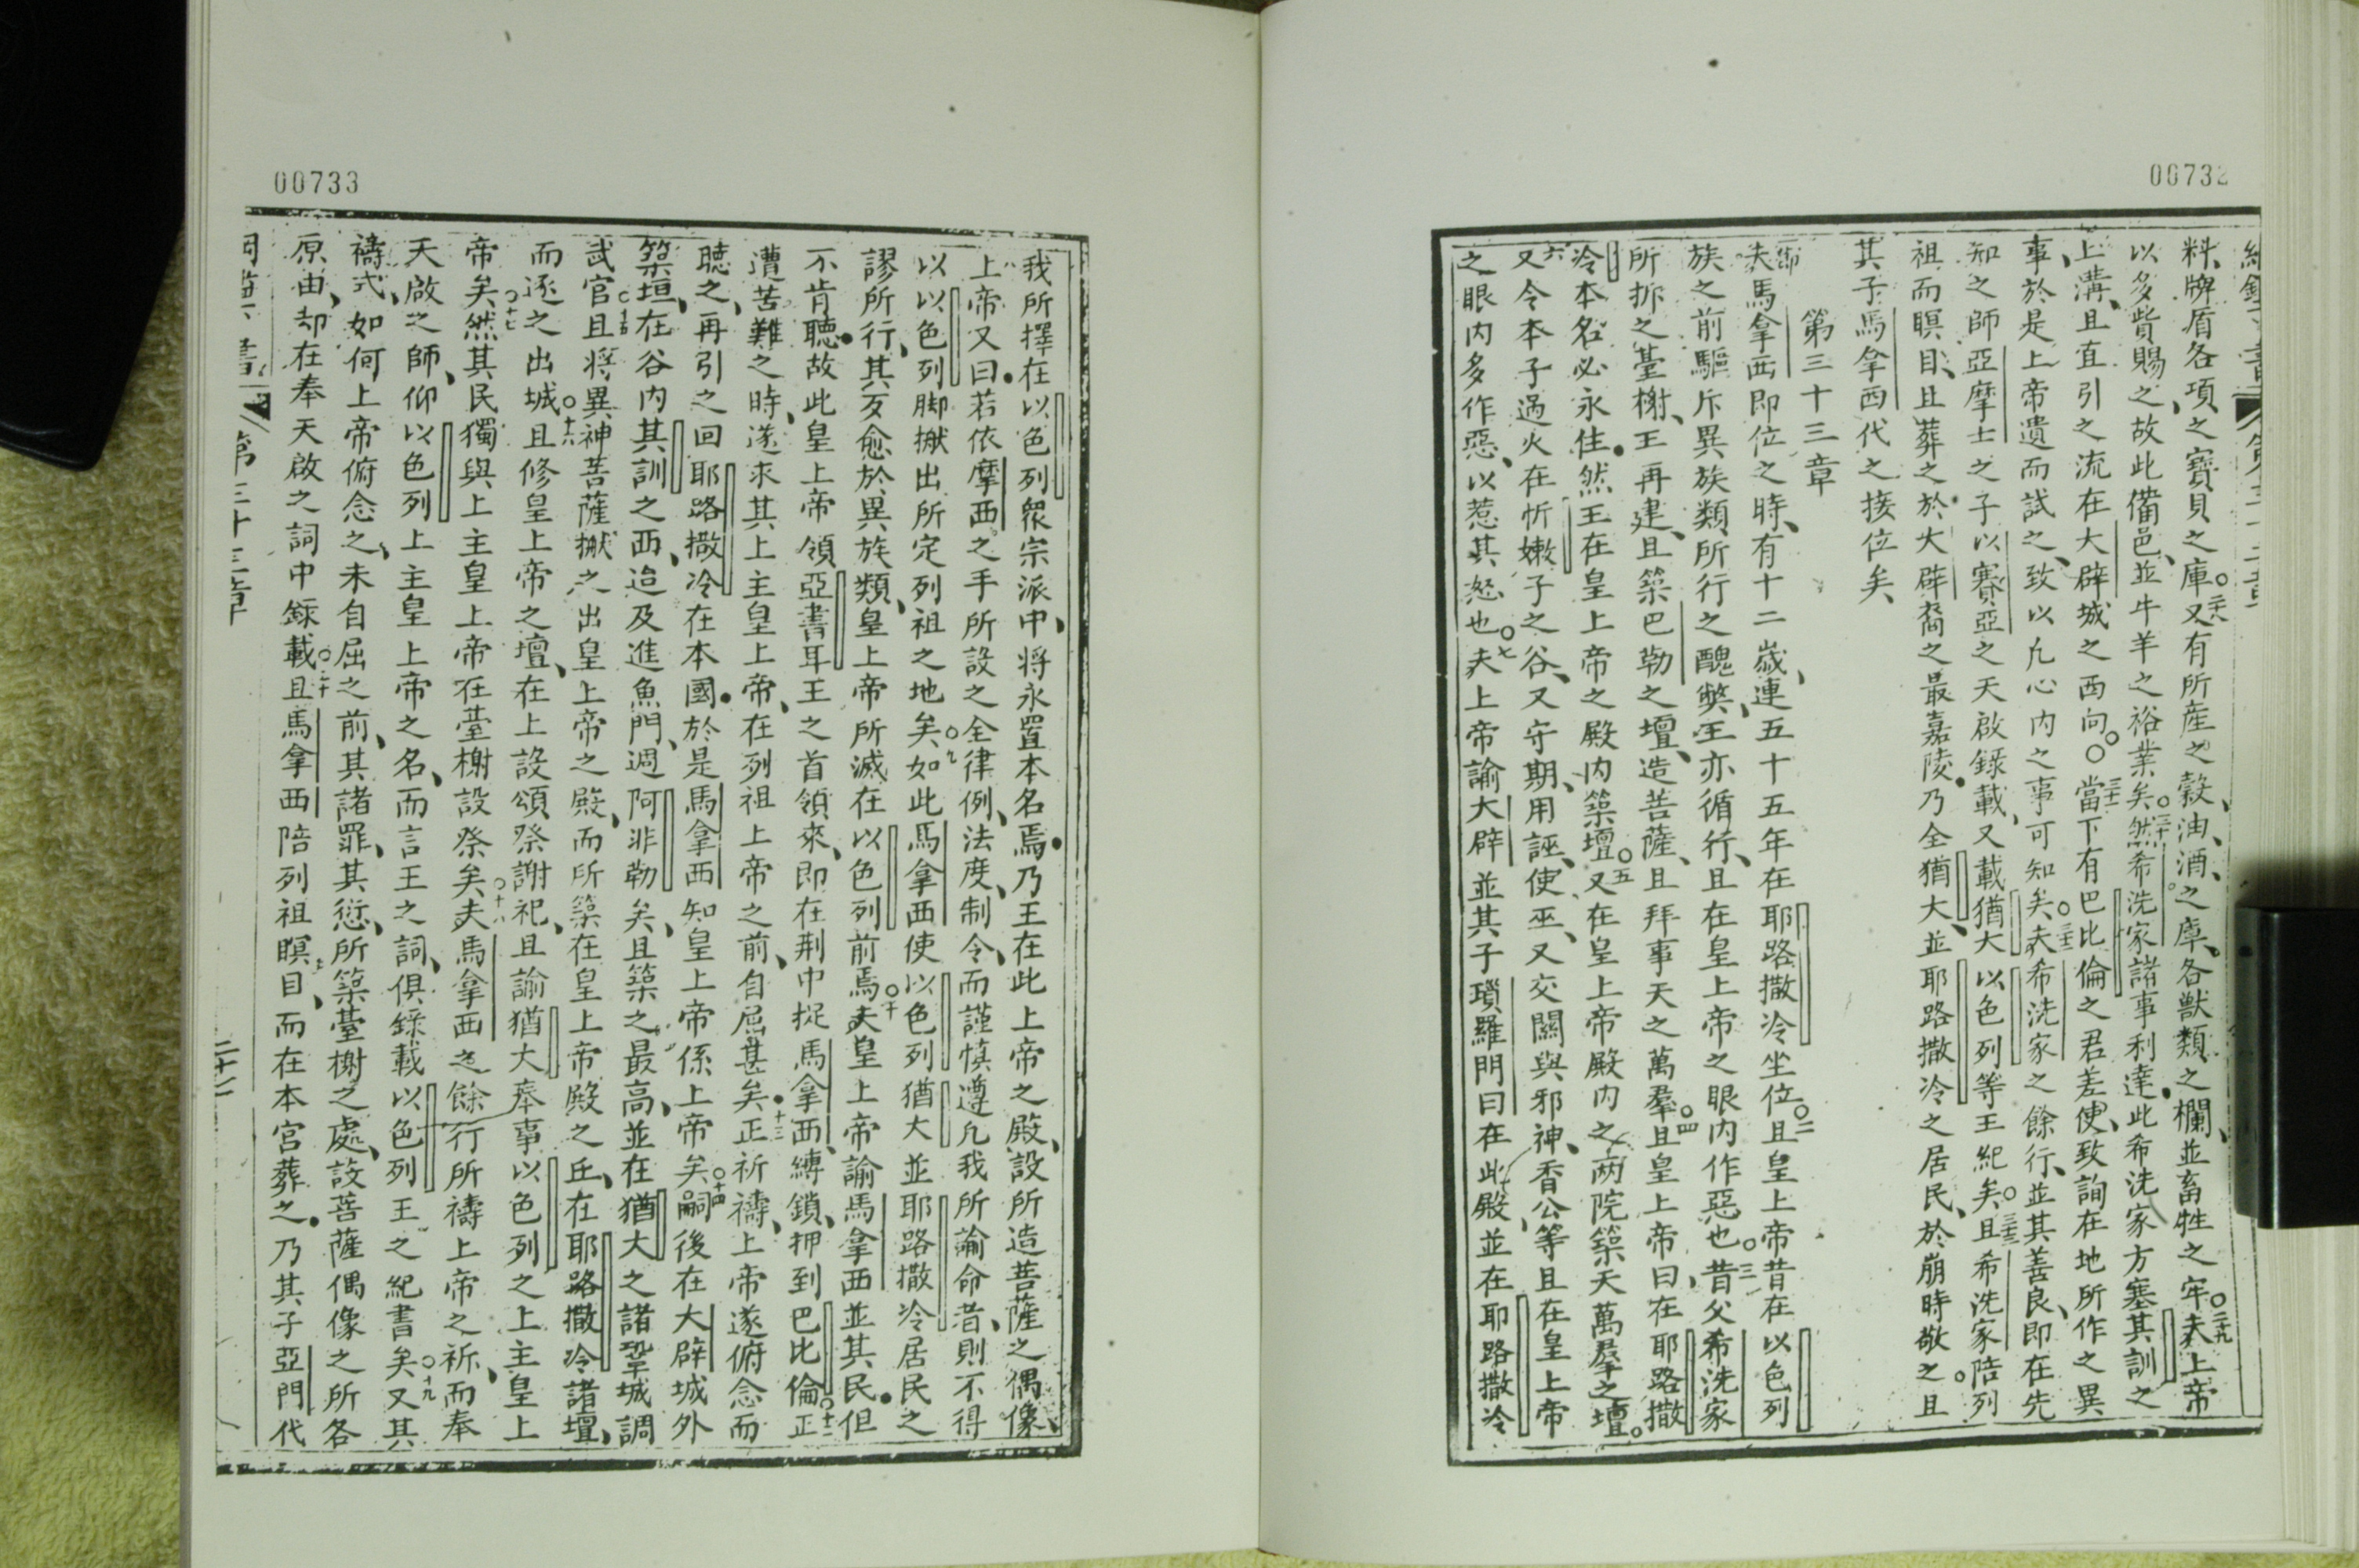 00732
料、牌盾各項、之寶貝之庫○二十八又有所産之穀、油、酒、之庫、各獸類之欄、並畜牲之牢○二十九夫上帝
以多貲賜之故此備邑、並牛羊之裕業矣○三十然希洗家諸事利達此希洗家方塞其訓之
上溝、且直引之流在大辟城之西向○三十一當下有巴比倫之君差使、致詢在地所作之異
事、於是上帝遺而試之、致以凡心内之事可知矣○三十二夫希洗家之餘行、並其善良、即在先
知之師亞摩士之子以賽亞之天啟錄載、又載猶大以色列等王紀矣○三十三且希洗家陪列
祖而瞑目、且葬之於大辟裔之最嘉陵乃全猶大、並耶路撒冷之居民、於崩時敬之且
其子馬拿西代之接位矣
第三十三章
一節夫馬拿西即位之時、有十二歲、連五十五年在耶路撒冷坐位○二且皇上帝昔在以色列
族之前驅斥異族類所行之醜獘、王亦循行、且在皇上帝之眼内作惡也○三昔父希洗家
所拆之臺榭、王再建、且築巴勒之壇、造菩薩、且拜事天之萬羣○四且皇上帝曰、在耶路撒
冷本名必永住然王在皇上帝之殿内築壇○五又在皇上帝殿内之两院築天萬羣之壇
六又令本子過火在忻嫩子之谷、又守期、用誣、使巫、又交關與邪神、香公等且在皇上帝
之眼内多作惡、以惹其怒也○七夫上帝諭大辟並其子瑣羅門曰在此殿、並在耶路撒冷
00733
我所擇在以色列衆宗派中、将永置本名焉乃王在此上帝之殿、設所造菩薩之偶像
上帝又曰若依摩西之手所設之全律例、法度、制令、而謹慎遵凡我所諭命者、則不得
以以色列脚揪出所定列祖之地矣○九如此馬拿西使以色列猶大並耶路撒冷居民之
謬所行、其歹愈於異族類、皇上帝所滅在以色列前焉○十夫皇上帝諭馬拿西並其民但
不肯聽故此皇上帝領亞書耳王之首領來、即在荆中捉馬拿西、縛鎖、押到巴比倫○十二正
遭苦難之時、遂求其上主皇上帝、在列祖上帝之前、自屈甚矣十三正祈禱、上帝遂俯念而
聽之、再引之回耶路撒冷在本國於是馬拿西知皇上帝係上帝矣○十四嗣後在大辟城外
築垣、在谷内其訓之西、迨及進魚門、週阿非勒矣、且築之最高、並在猶大之諸鞏城調
武官○十五且將異神菩薩揪之出皇上帝之殿、而所築在皇上帝殿之丘、在耶路撒冷諸壇、
而逐之出城○十六且修皇上帝之壇、在上設頌祭謝祀、且諭猶大奉事以色列之上主皇上
帝矣○十七然其民獨與上主皇上帝在臺榭設祭矣○十八夫馬拿西之餘行所禱上帝之祈、而奉
天啟之師、仰以色列上主皇上帝之名、而言王之詞、俱錄載以色列王之紀書矣○十九又其
禱式、如何上帝俯念之、未自屈之前、其諸罪、其愆、所築臺榭之處、設菩薩偶像之所各
原由、却在奉天啟之詞中錄載○二十且馬拿西陪列祖瞑目、而在本宮葬之乃其子亞門代
第三十三章